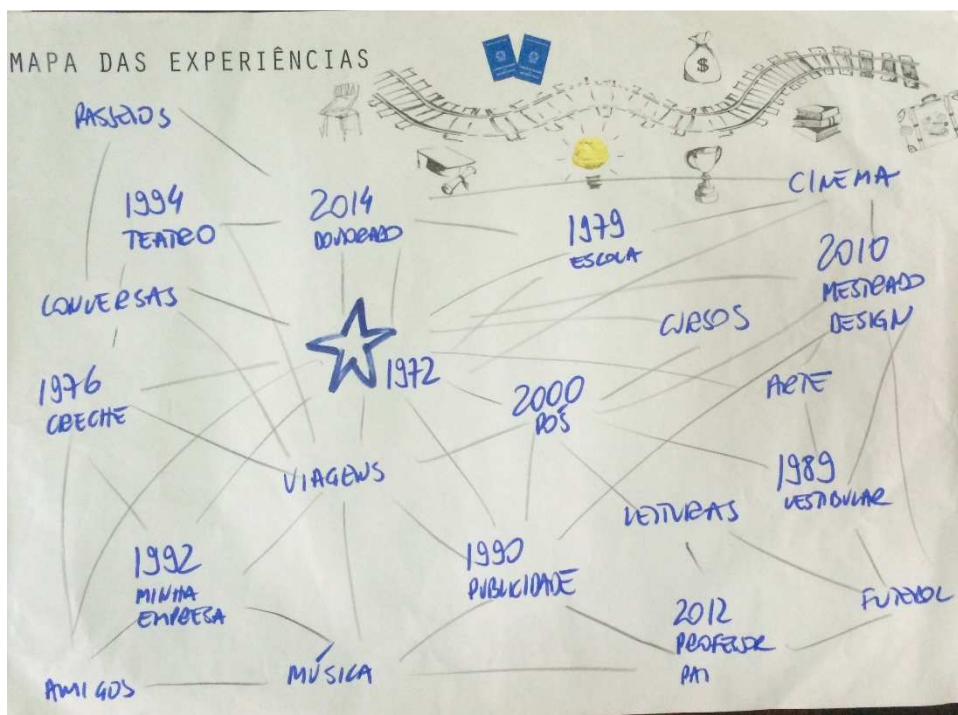 MAPA DAS EXPERIÊNCIAS
$
PASSEIOS
CINEMA
1994
TEATRO
2014
DOUTORADO
1979
ESCOLA
2010
MESTRADO
DESIGN
CONVERSAS
CURSOS
1972
1976
CRECHE
2000
PÓS
ARTE
VIAGENS
1989
VESTIBULAR
LEITURAS
1992
MINHA
EMPRESA
1990
PUBLICIDADE
2012
PROFESSOR
PAI
FUTEBOL
AMIGOS
MÚSICA